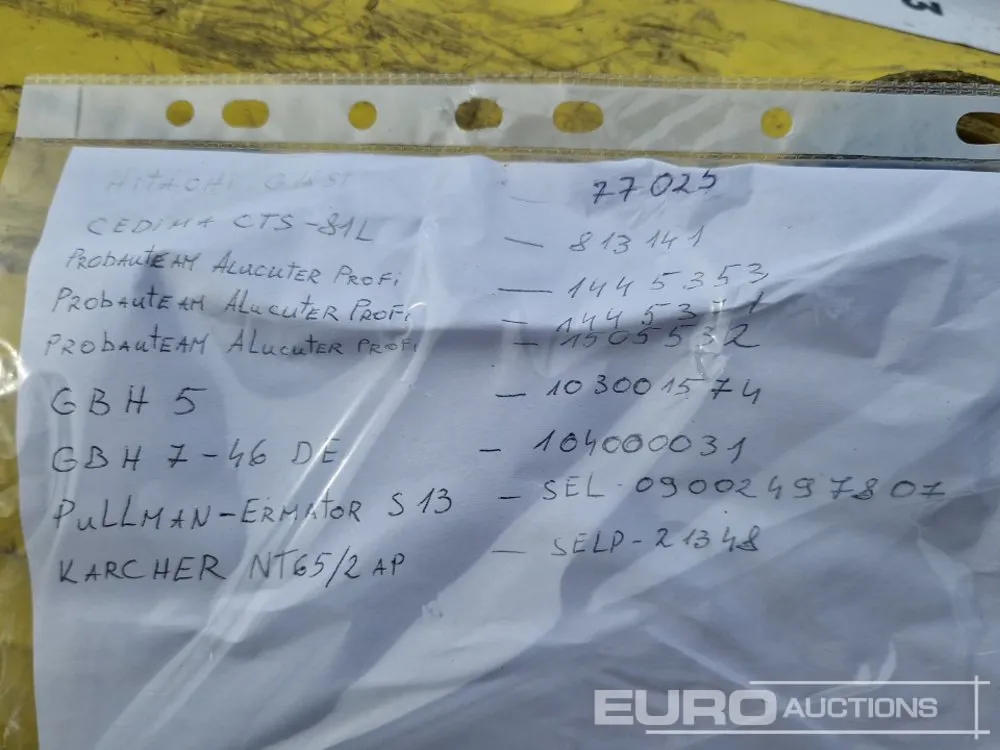 HITACHI - 77025
CEDIMA CTS-81L - 813141
PROBAUTEAM ALUCUTER PROFI - 1445353
PROBAUTEAM ALUCUTER PROFI
PROBAUTEAM ALUCUTER PROFI - 1505532
GBH 5 - 103001574
GBH 7-46 DE - 104000031
PULLMAN-ERMATOR S 13 - SEL-09002497807
KARCHER NT65/2 AP - SELP-21348
EURO AUCTIONS